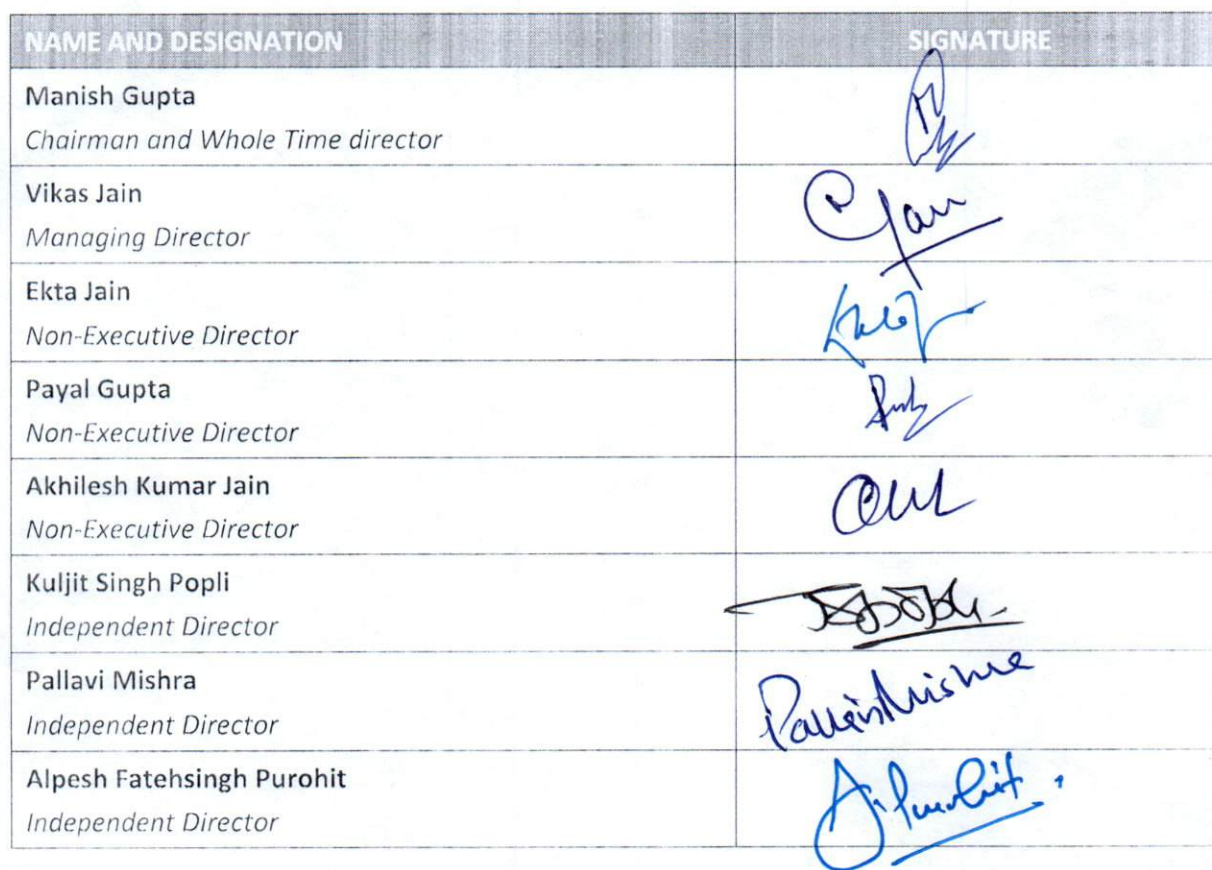 NAME AND DESIGNATION SIGNATURE
Manish Gupta
Chairman and Whole Time director
Vikas Jain
Managing Director
Ekta Jain
Non-Executive Director
Payal Gupta
Non-Executive Director
Akhilesh Kumar Jain
Non-Executive Director
Kuljit Singh Popli
Independent Director
Pallavi Mishra
Independent Director
Alpesh Fatehsingh Purohit
Independent Director